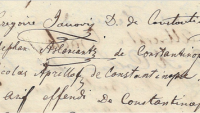 Gregoire Janovig D. de Constanti
Stephan Allomantz de Constantinop
icolas Aprellof de Constantinople
arif effendi De Constantinop